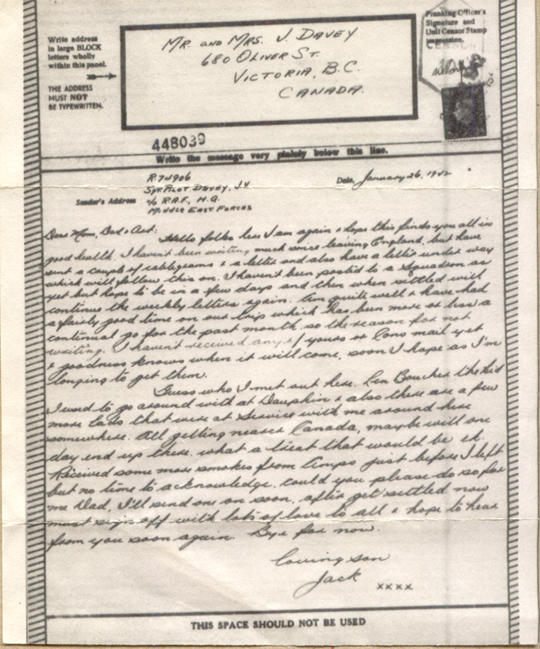 Write address
in large BLOCK
letters wholly
within this panel.
THE ADDRESS
MUST NOT
BE TYPEWRITTEN.
MR. AND MRS. J. DAVEY
680 OLIVER ST.
VICTORIA, B.C.
CANADA.
Franking Officer's
Signature and
Unit Censor Stamp
impression.
448039
Write the message very plainly below this line.
R74906
SGT. PILOT DAVEY, J.V
Sender's Address c/o R.A.F. H.Q.
MIDDLE EAST FORCES
Date, January 26, 1942
Dear Mom, Dad & Aud:
Hello folks here I am again & hope this finds you all in
good health. I haven't been writing much since leaving England, but have
sent a couple of cablegrams & a letter and also have a letter under way
which will follow this on. I haven't been posted to a Squadron as
yet but hope to be in a few days and then when settled will
continue the weekly letters again. Am quite well & have had
a fairly good time on our trip which has been more or less a
continual go for the past month, so the reason for not
writing. I haven't received any of yours or Cons mail yet
& goodness knows when it will come, soon I hope as I'm
longing to get them.
Guess who I met out here. Len Boucher the kid
I used to go around with at Dauphin & also there are a few
more lads that were at Service with me around here
somewhere. All getting nearer Canada, maybe will one
day end up there. what a treat that would be eh.
Received some more smokes from Amps just before I left
but no time to acknowledge. could you please do so for
me Dad, I'll send one on soon, after get settled now
must sign off with lots of love to all & hope to hear
from you soon again. Bye for now.
loving son
Jack xxxx
THIS SPACE SHOULD NOT BE USED